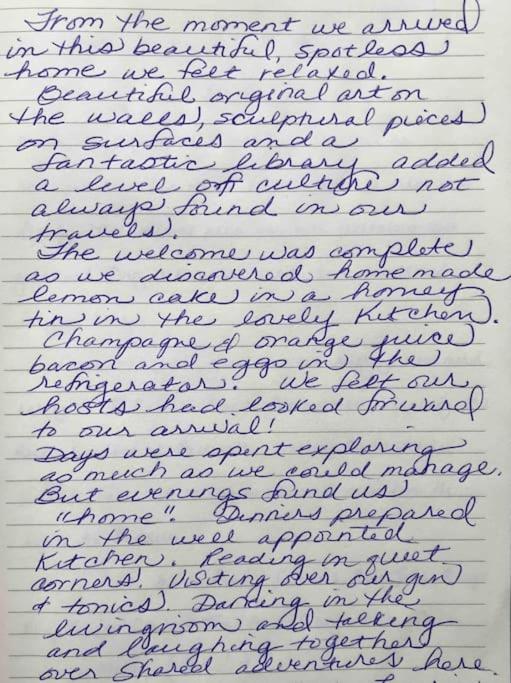 From the moment we arrived
in this beautiful, spotless
home we felt relaxed.
Beautiful original art on
the walls, sculptural pieces
on surfaces and a
fantastic library added
a level off culture not
always found in our
travels.
The welcome was complete
as we discovered homemade
lemon cake in a homey
tin in the lovely kitchen.
Champagne & orange juice
bacon and eggs in the
refrigerator. We felt our
hosts had looked forward
to our arrival!
Days were spent exploring
as much as we could manage.
But evenings found us
"home". Dinners prepared
in the well appointed
Kitchen. Reading in quiet
corners. Visiting over our gin
& tonics. Dancing in the
livingroom and talking
and laughing together
over shared adventures here.